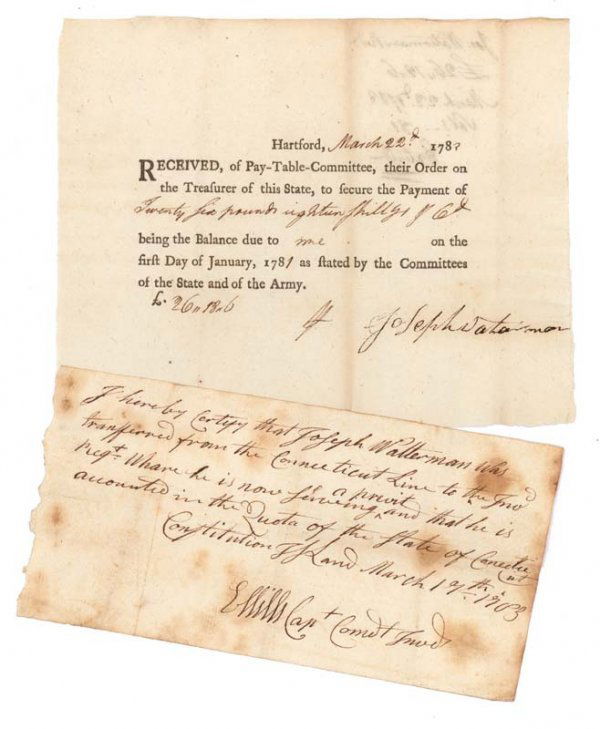 Hartford, March 22d 178
RECEIVED, of Pay-Table-Committee, their Order on
the Treasurer of this State, to secure the Payment of
Twenty Six pounds eighteen shillgs & 6d
being the Balance due to me on the
first Day of January, 1781 as stated by the Committees
of the State and of the Army.
£. 26 " 18 " 6
Joseph Waterman
I hereby Certify that Joseph Watterman Was
transferred from the Connecticut Line to the Invd
Regt. Whare he is now Serveing a privit and that he is
accounted in the Quota of the State of Conecticut
Constitution Island March 17th 1783
Capt Comdt Invds